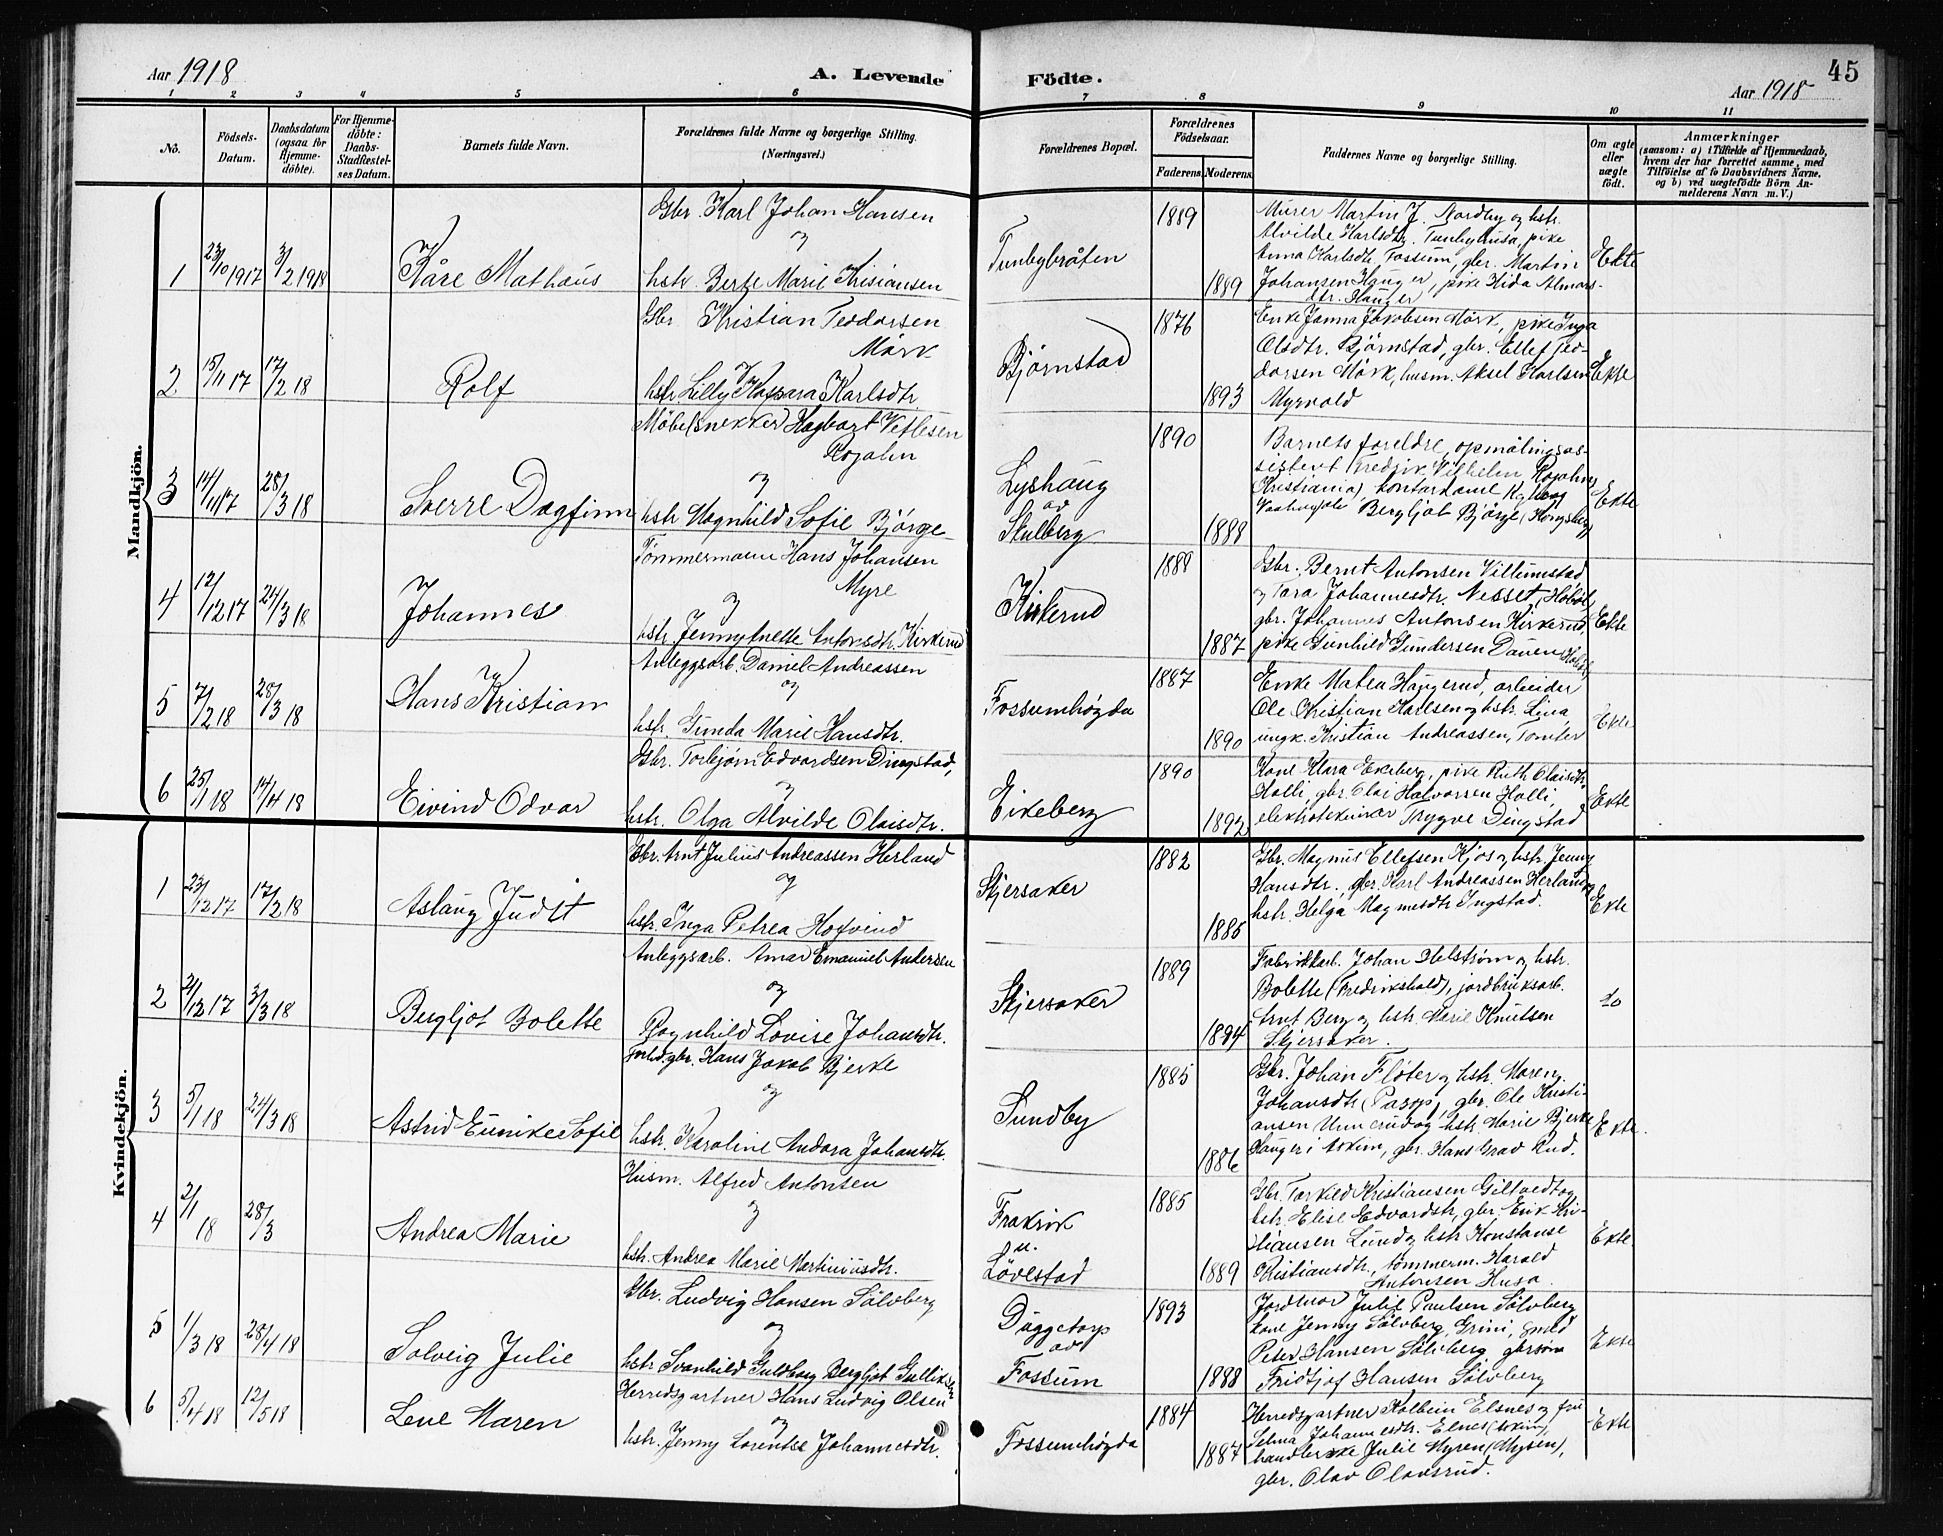 Aar 1918
A. Levende Födte.
45
Aar 1918
1 2 3 4 5 6 7 8 9 10 11
No.
Födsels-Datum.
Daabsdatum (ogsaa for Hjemme-döbte).
For Hjemme-döbte: Daabs-Stadfæstelses Datum.
Barnets fulde Navn.
Forældrenes fulde Navne og borgerlige Stilling.
(Næringsvei.)
Forældrenes Bopæl.
Forældrenes Födselsaar.
Faderens. Moderens.
Faddernes Navne og borgerlige Stilling.
Om ægte eller uægte födt.
Anmærkninger
(saasom: a) i Tilfælde af Hjemmedaab,
hvem der har forrettet samme, med
Tilföielse af to Daabsvidners Navne,
og b) ved uægtefödte Börn An-
melderens Navn m. V.)
Mandkjön.
1 23/10 1917 3/2 1918
Kåre Mathæus
Gbr. Karl Johan Hansen
og
hstr. Berte Marie Kristiansen
Tunbybråten
1889
1889
Murer Martin J. Nordby og hstr.
Alvilde Karlsdtr. Tunbyhusa, pike
Anna Karlsdtr. Fossum, gbr. Martin
Johansen Hauger, pike Hilda Almars-
dtr. Hauger
Ekte
2 15/11 17 17/2 18
Rolf
Gbr. Kristian Teodorsen
Mørk
og
hstr. Lilly Kassara Karlsdtr
Bjørnstad
1876
1893
Enke Janna Jakobsen Mørk, pike Inga
Olsdtr. Bjørnstad, gbr. Ellef Teo-
dorsen Mørk, husm. Aksel Karlsen
Myrvold
Ekte
3 14/11 17 28/3 18
Sverre Dagfinn
Möbelsnekker Hagbart Vetlesen
Rojahn
og
hstr Magnhild Sofie Bjørge
Lyshaug
av
Skulberg
1890
1888
Barnets foreldre, opmålingsas-
sistent Fredrik Vilhelm Rojahn,
Kristiania, kontordame
Bergljot Bjørge (Kongsberg)
Ekte
4 12/12 17 24/3 18
Johannes
Tømmermann Hans Johansen
Myre
og
hstr. Jenny Anette Antonsdtr. Kirkerud
Kirkerud
1888
1887
Gbr. Bernt Antonsen Villumstad
og Tora Johannesdtr. Nesset, Hobøl,
gbr. Johannes Antonsen Kirkerud,
pike Gunhild Gundersen Dauen Hobøl
Ekte
5 7/2 18 28/3 18
Hans Kristian
Anleggsarb. Daniel Andreassen
og
hstr. Gunda Marie Hansdtr.
Fossumhøgda
1887
1890
Enke Matea Haugerud, arbeider
Ole Kristian Karlsen og hstr. Lina,
ungk. Kristian Andreassen, Tomter
Ekte
6 25/1 18 14/4 18
Eivind Odvar
Gbr. Torbjørn Edvardsen Dingstad,
og
hstr. Olga Alvilde Olaisdtr.
Eikeberg
1890
1892
Kone Klara Ekeberg, pike Ruth Olaisdtr.
Holli, gbr. Olai Halvorsen Holli,
elektrotekniker Trygve Dingstad
Ekte
Kvindekjön.
1 23/12 17 17/2 18
Aslaug Judit
Gbr. Arnt Julius Andreassen Herland
og
hstr. Inga Petrea Hofvind
Skjersaker
1882
1885
Gbr. Magnus Ellefsen Kjos og hstr. Jenny
Hansdtr. gbr. Karl Andreassen Herland og
hstr. Helga Magnusdtr Ingstad.
Ekte
2 2/12 17 3/3 18
Bergljot Bolette
Anleggsarb. Amar Emanuel Andersen
og
Ragnhild Lovise Johansdtr.
Skjersaker
1889
1894
Fabrikkarb. Johan Helstrøm og hstr.
Bolette (Fredrikshald), jordbruksarb.
Arnt Berg og hstr. Marie Knutsen
Skjersaker.
do
3 5/1 18 24/3 18
Astrid Eunike Sofie
Forh. gbr. Hans Jakob Bjerke
og
hstr. Karoline Andora Johansdtr.
Sundby
1885
1886
Gbr. Johan Fløter og hstr. Maren
Johansdtr (Pasop), gbr. Ole Kristi-
ansen Unnerud og hstr. Marie Bjerke
Hauger i Askim, gbr. Hans Grav Rud.
Ekte.
4 2/1 18 28/3
Andrea Marie
Husm. Alfred Antonsen
og
hstr. Andrea Marie Martiniusdtr.
Frakrik
u.
Løvestad
1885
1889
Gbr. Torkild Kristiansen Giltvedt og
hstr. Elise Edvardstr, gbr. Erik Kri-
stiansen Lund og hstr Konstanse
Kristiansdtr, tømmerm. Harald
Antonsen Husa.
Ekte.
5 1/3 18 28/4 18
Solveig Julie
Gbr. Ludvig Hansen Sölvberg
og
hstr Svanhild Guldborg Bergljot Gulliksen
Duggetorp
av
Fossum
1893
1888
Jordmor Julie Paulsen Sölvberg
kone Jenny Sölvberg, Grini, smed
Peter Hansen Sölvberg gbrsøn
Fridtjof Hansen Sölvberg
Ekte
6 5/4 18 12/5 18
Lene Maren
Herredsgartner Hans Ludvig Olsen
og
hstr. Jenny Lorentse Johannesdtr.
Fossumhøgda
1884
1887
Herredsgartner Kolbein Elsnes og fru
Selma Johannesdtr. Elnes (Askim),
handlerske Julie Myren (Mysen),
gbr. Olav Olavsrud.
Ekte